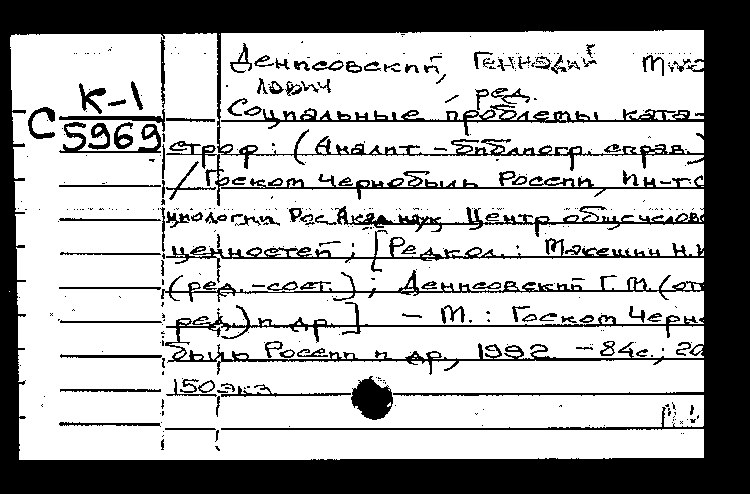 Денисовский, Геннадий
лович , ред.
К-1
С 5969
Социальные проблемы ката-
строф : (Аналит.-библиогр. справ.)
/ Госком Чернобыль России, Ин-т со
циологии Рос Акад наук Центр общечелове
ценностей ; [Редкол.: Мякешин Н.И
(ред.-сост.) ; Денисовский Г.М. (отв
ред) и др.] - М. : Госком Черно
быль России и др., 1992. - 84с.; 20
150экз.